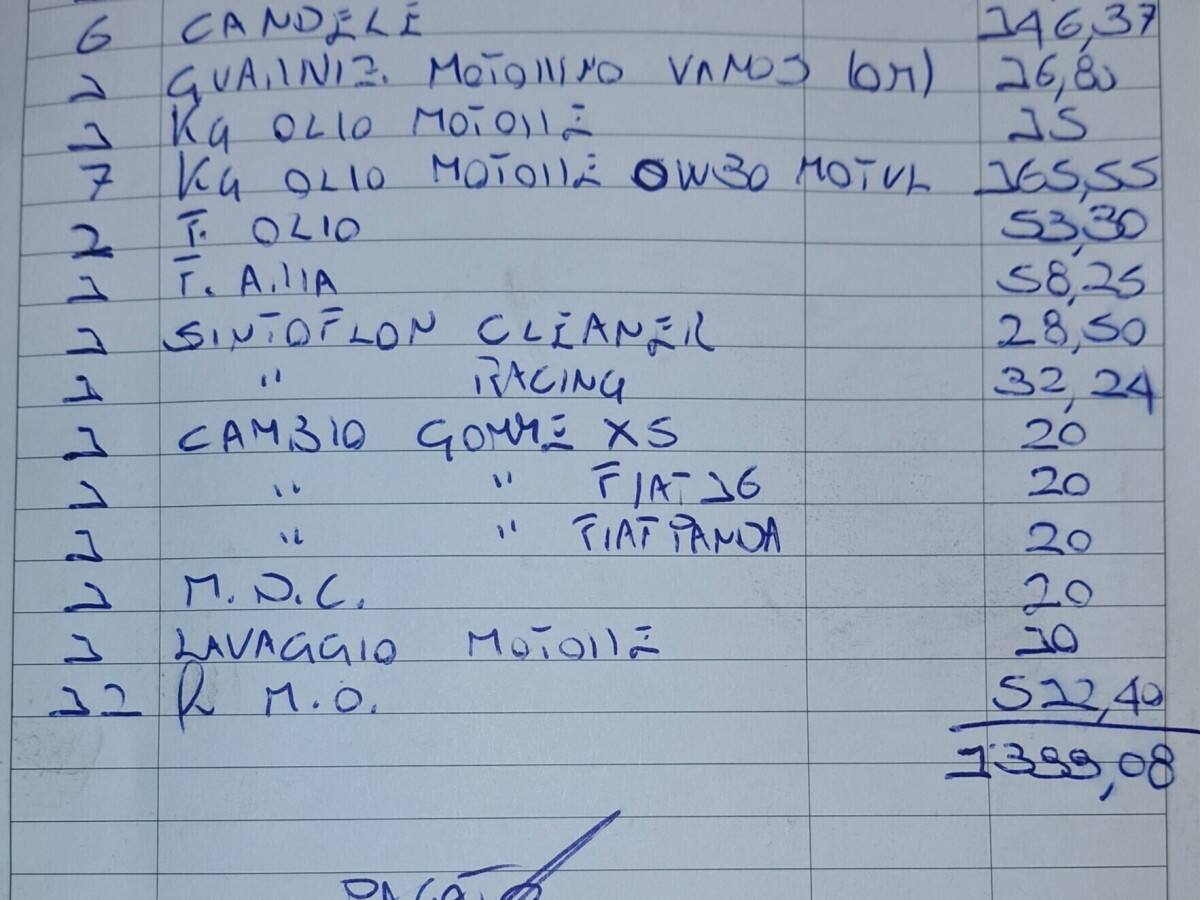 6 CANDELE 146,37
1 GUARNIZ. MOTORINO VANOS (OR) 16,80
1 KG OLIO MOTORE 15
7 KG OLIO MOTORE 0W30 MOTUL 165,55
2 F. OLIO 53,30
1 F. ARIA 58,25
1 SINTOFLON CLEANER 28,50
1 " RACING 32,24
1 CAMBIO GOMME X5 20
1 " " FIAT 16 20
1 " " FIAT PANDA 20
1 M.D.C. 20
1 LAVAGGIO MOTORE 10
12 h M.O. 512,40
1399,08
PAGATO